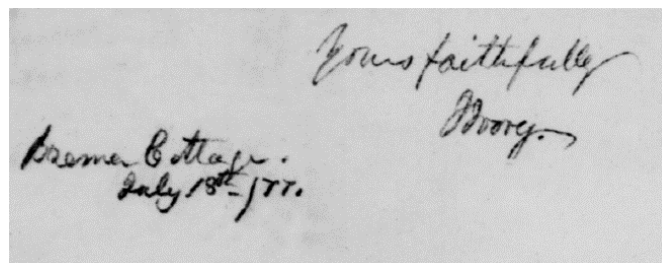 Yours faithfully
Bremer Cottage.
July 18th /77.